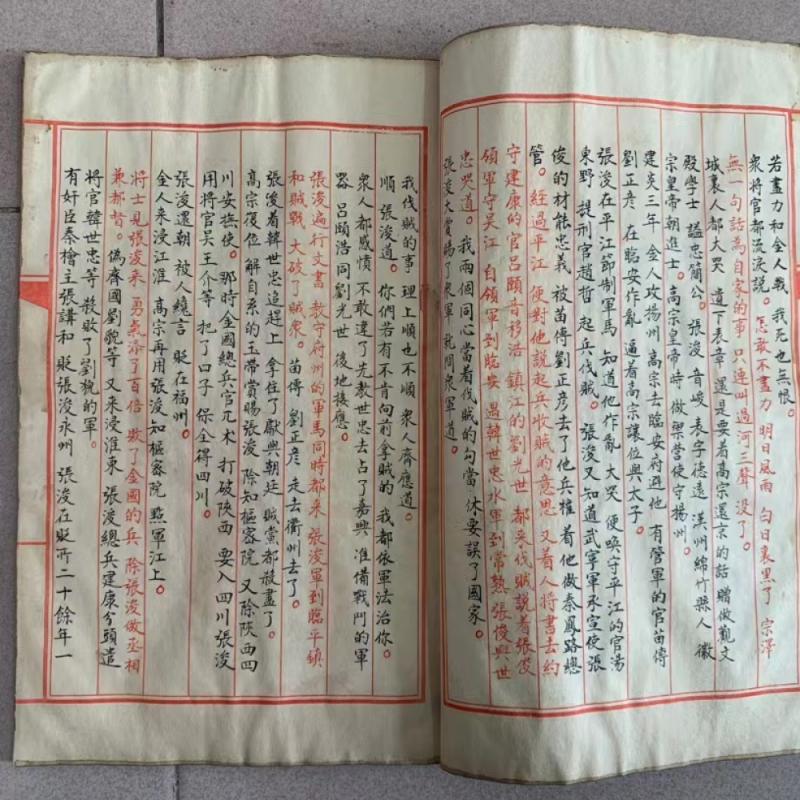 若盡力和金人戰 我死也無恨。
衆將官都流淚說。怎敢不盡力 明日風雨 白日裏黑了 宗澤
無一句話為自家的事 只連叫過河三聲 沒了。
城裏人都大哭 遺下表章 還是要着高宗還京的話 贈做觀文
殿學士 謚忠簡公。張浚 音峻 表字德遠 漢州綿竹縣人 徽
宗皇帝朝進士。高宗皇帝時 做禦營使守揚州。
建炎三年 金人攻揚州 高宗去臨安府避他 有管軍的官苗傅
劉正彥 在臨安作亂 逼着高宗讓位與太子。
張浚在平江節制軍馬 知道他作亂 大哭 便喚守平江的官湯
東野 提刑官趙哲 起兵伐賊。張浚又知道武寧軍承宣使張
俊的材能忠義 被苗傅劉正彥去了他兵權 着他做秦鳳路總
管。經過平江 便對他說起兵收賊的意思 又着人將書去約
守建康的官呂頤音移浩 鎮江的劉光世 都来伐賊説着張俊
領軍守吳江 自領軍到臨安 遇韓世忠水軍到常熟 張俊與世
忠哭道。我兩個同心當着伐賊的勾當 休要誤了國家。
張浚大賞賜了衆軍 就問衆軍道。
我伐賊的事 理上順也不順 衆人齊應道。
順 張浚道。你們若有不肯向前拿賊的 我都依軍法治你。
衆人都感憤 不敢違了先教世忠去占了嘉興 准備戰鬥的軍
器 呂頤浩 同劉光世 後地接應。
張浚遍行文書 教守府州的軍馬同時都来 張浚軍到臨平鎮
和賊戰 大破了賊衆。苗傅 劉正彥 走去衢州去了。
張浚着韓世忠追趕上 拿住了獻與朝廷 賊黨都殺盡了。
高宗復位 解自系的玉帶賞賜張浚 除知樞密院 又除陝西四
川安撫使。那時金國總兵官兀术 打破陝西 要入四川張浚
用將官吴玠等 把了四子 保全得四川。
張浚還朝 被人纔言 貶在福州。
金人来浸江淮 高宗再用張浚知樞密院 㸃軍江上。
將士見張浚来 勇氣添了百倍 敗了金國的兵 除張浚做丞相
兼都督。偽齊國劉貌等 又来浸淮東 張浚總兵建康分頭遣
將官韓世忠等 殺敗了劉貌的軍。
有奸臣秦檜主張講和 貶張浚永州 張浚在貶所二十餘年一